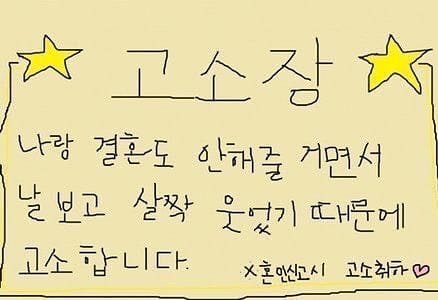 고소장
나랑 결혼도 안해줄 거면서
날 보고 살짝 웃었기 때문에
고소합니다. X혼인신고시 고소취하♡